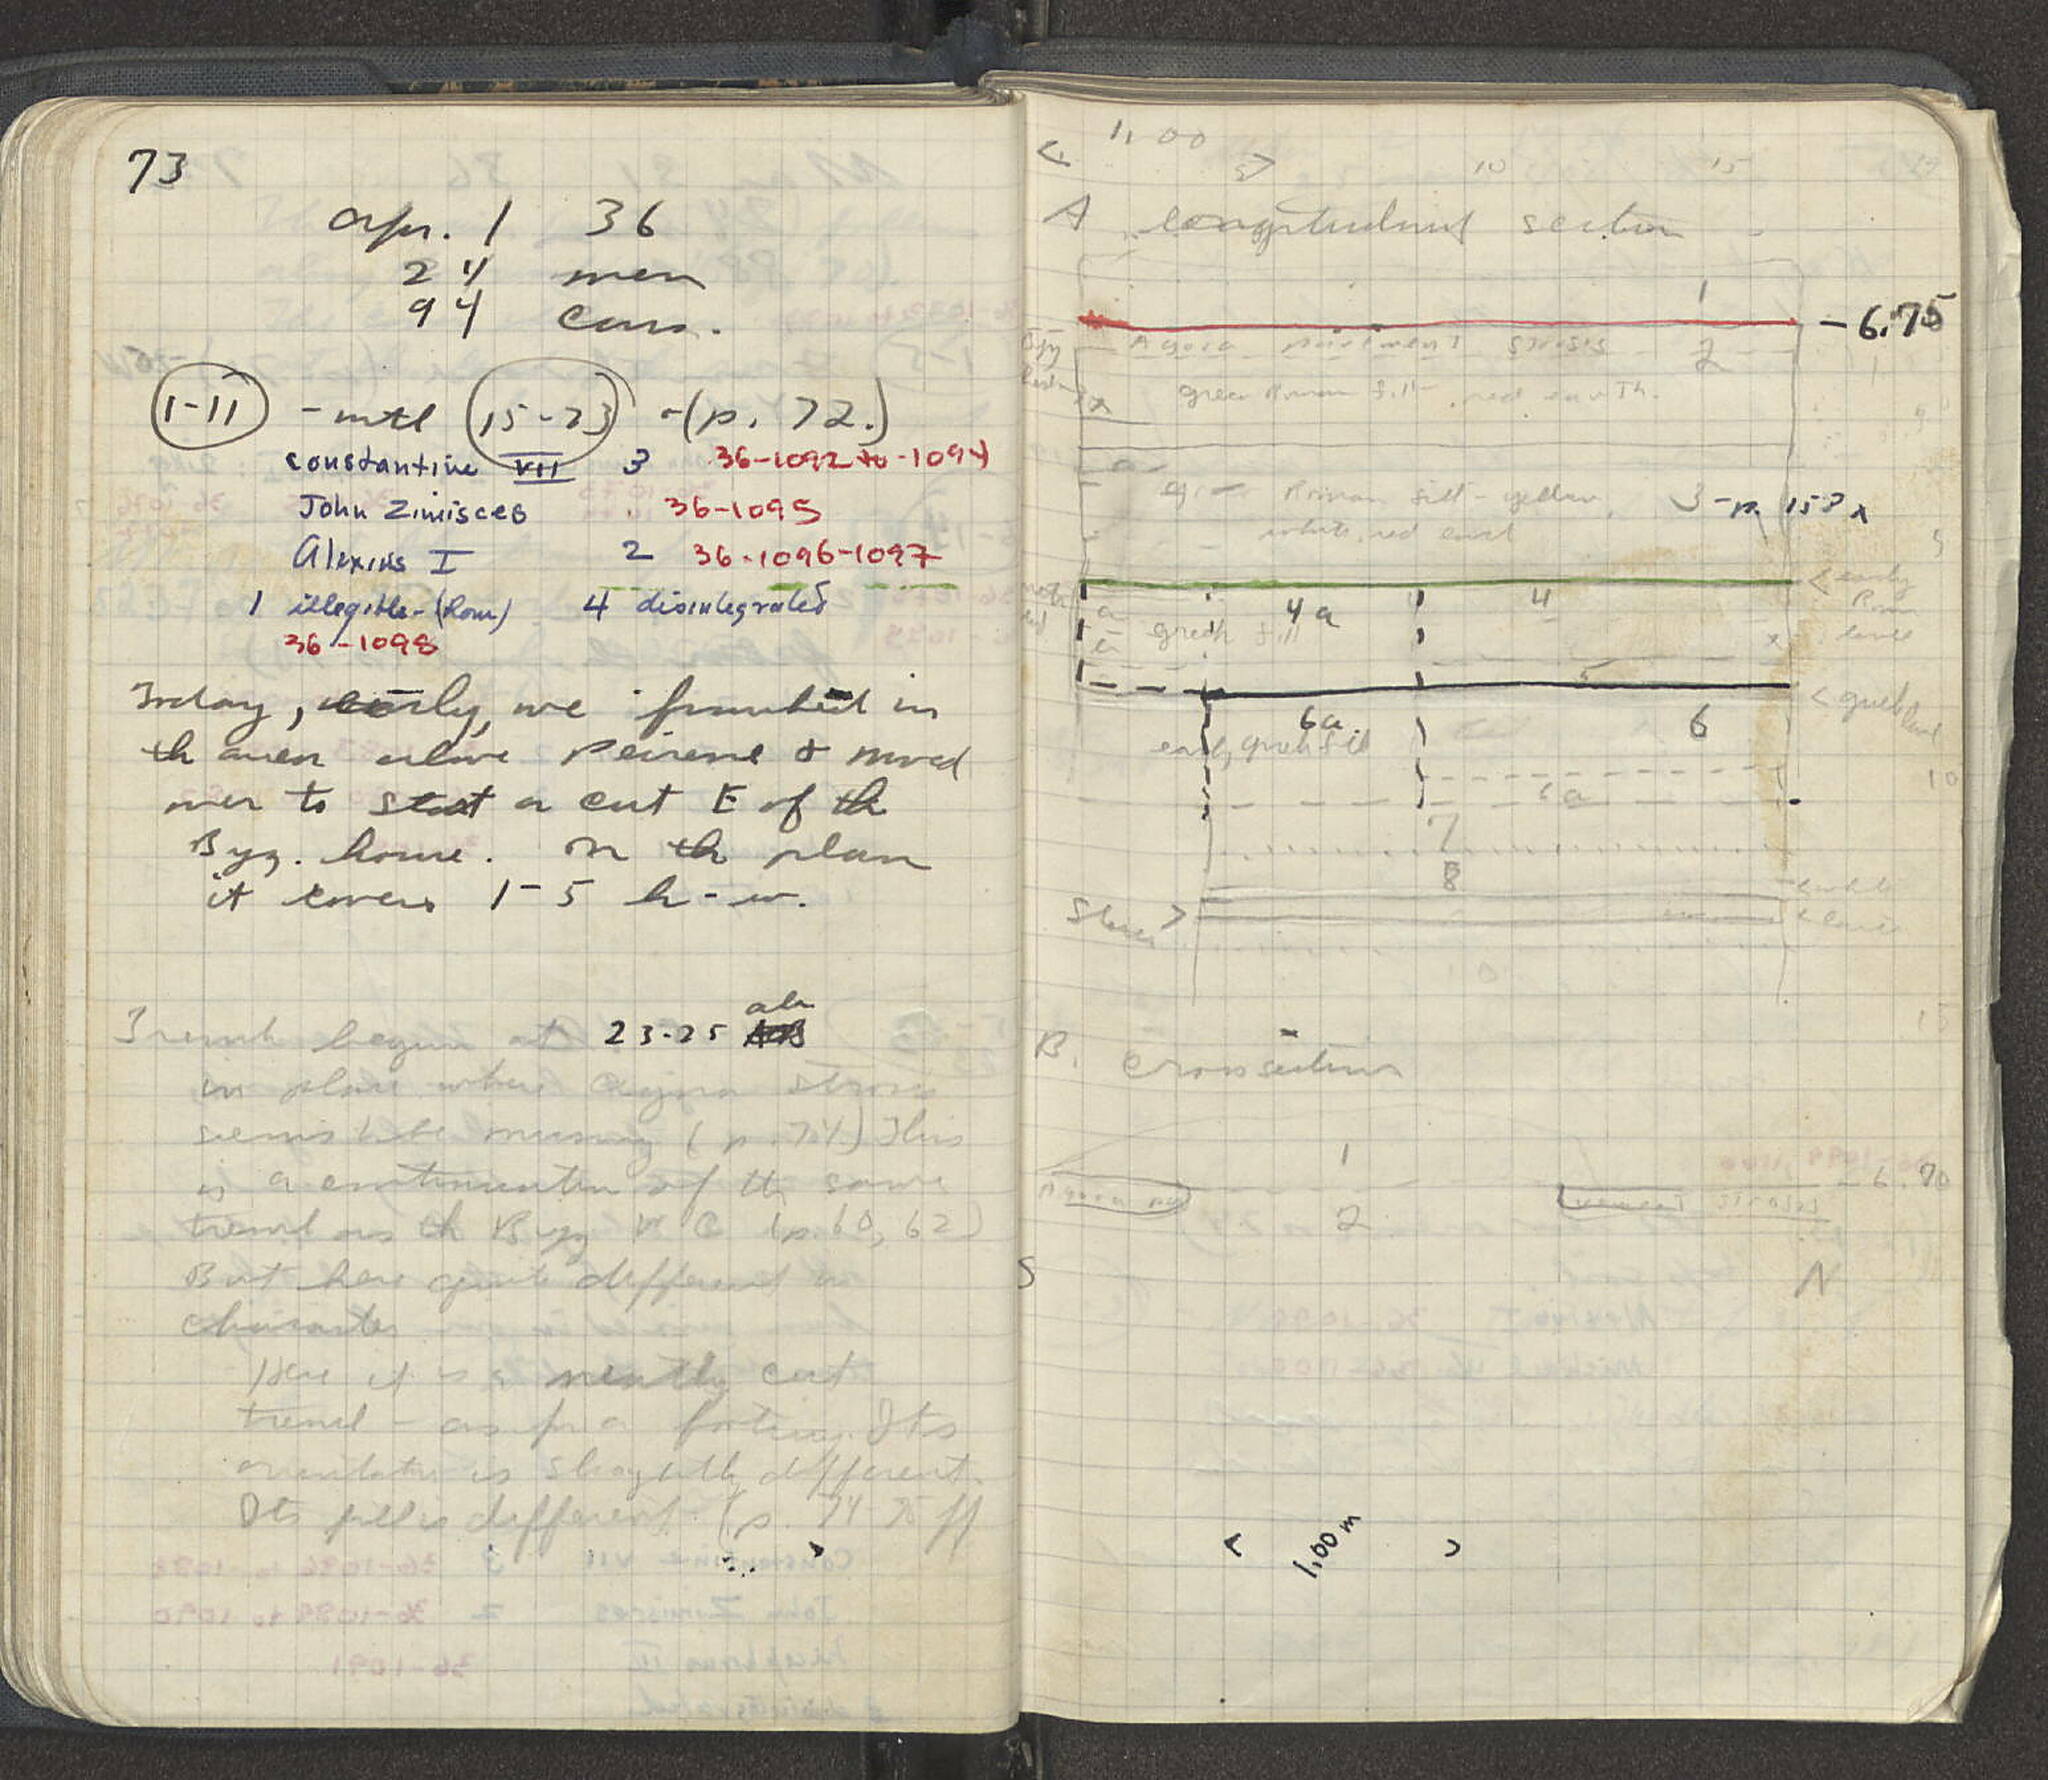 73
Apr. 1 36
24 men
94 cans.
1-11 - until 15-23 - (p. 72.)
Constantine VII 3 36-1092 to -1094
John Zimisces 36-1095
Alexius I 2 36-1096-1097
1 illegible - (Rom) 4 disintegrated
36-1098
Today, early, we finished in
th area above Peirene & moved
over to start a cut E of th
Byz. house. On th plan
it covers 1-5 h-w.
Trench begun at 23-25
in place where Agora strosis
seems to be missing (p. 74) This
is a continuation of th same
trench as th Byz W C (p. 60, 62)
But here quite different in
character
Here it is a neatly cut
trench - as for a footing. Its
orientation is slightly different.
Its fill is different. (p. 74-75 ff
1.00
5 10 15
A longitudinal section
1
-6.75
Agora pavement strosis 2
Roman fill - red earth.
a
Roman fill - yellow, 3 - p. 153
white, red earth
< early
Roman
level
a 4a 4
greek fill x
5
< greek level
6a 6
early greek fill
10
6a
7
8
>
15
B. Cross section
1
Agora pavement strosis -6.70
2
S N
< 1.00 m >